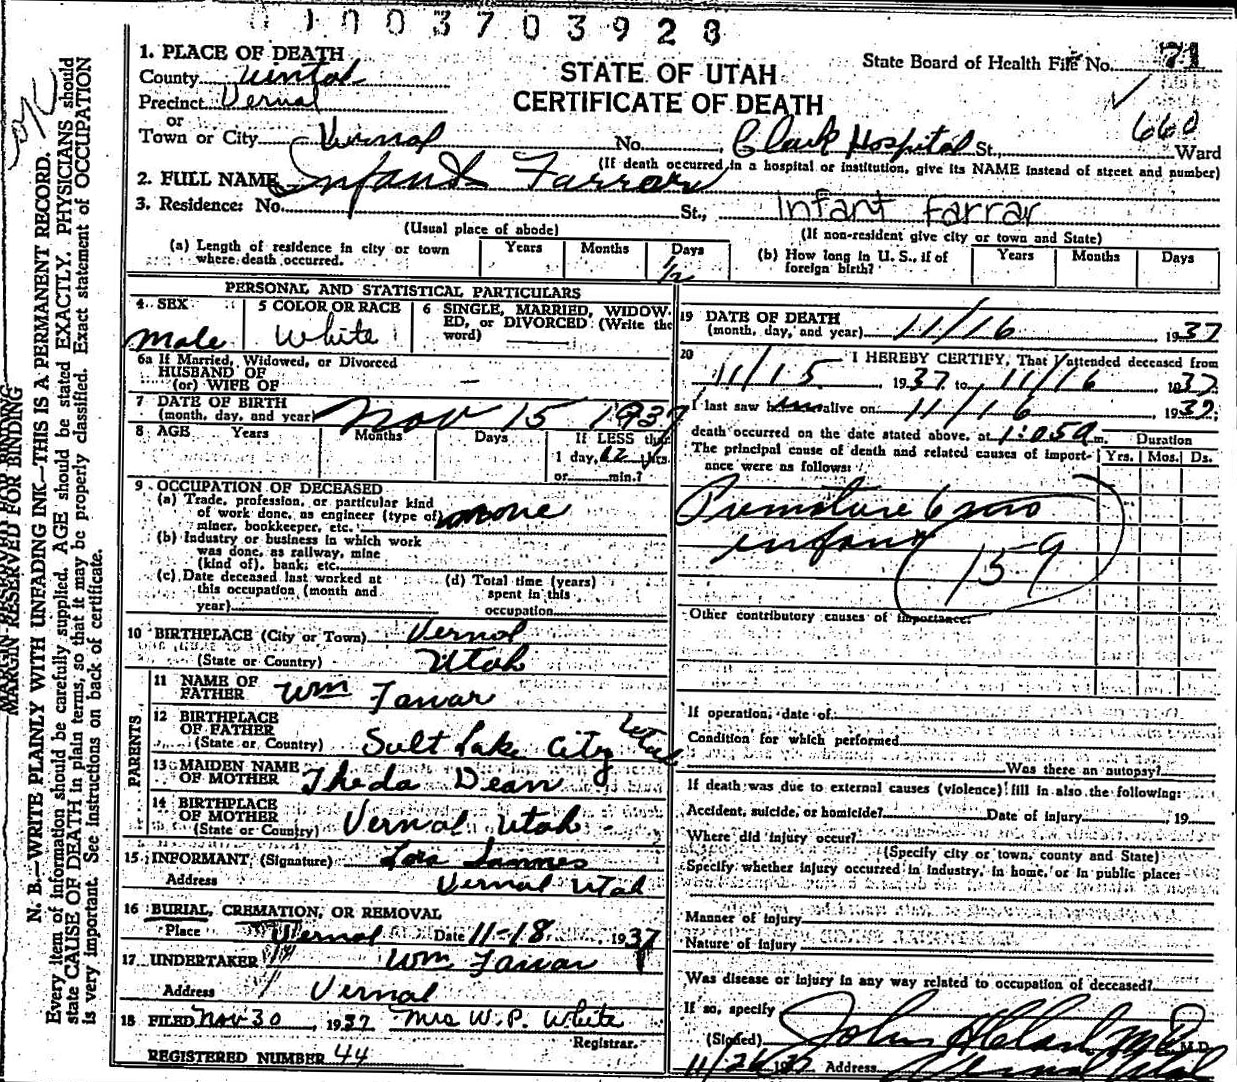 0100370392 8
1. PLACE OF DEATH
County Uintah
Precinct Vernal
or
Town or City Vernal
STATE OF UTAH
CERTIFICATE OF DEATH
State Board of Health File No. 71
660
No. Clark Hospital St., Ward
(If death occurred in a hospital or institution, give its NAME instead of street and number)
2. FULL NAME Infant Farrar
3. Residence: No. St., Infant Farrar
(Usual place of abode) (If non-resident give city or town and State)
(a) Length of residence in city or town where death occurred. Years Months Days 1/2
(b) How long in U. S., if of foreign birth? Years Months Days
PERSONAL AND STATISTICAL PARTICULARS
4 SEX
male
5 COLOR OR RACE
White
6 SINGLE, MARRIED, WIDOWED, or DIVORCED (Write the word)
6a If Married, Widowed, or Divorced
HUSBAND OF
(or) WIFE OF —
7 DATE OF BIRTH
(month, day, and year) Nov 15 1937
8 AGE Years Months Days If LESS than
1 day, 12 hrs.
or min.?
9 OCCUPATION OF DECEASED
(a) Trade, profession, or particular kind
of work done, as engineer (type of) none
miner, bookkeeper, etc.
(b) Industry or business in which work
was done, as railway, mine
(kind of), bank, etc.
(c) Date deceased last worked at
this occupation (month and
year)
(d) Total time (years)
spent in this
occupation
10 BIRTHPLACE (City or Town) Vernal
(State or Country) Utah
PARENTS
11 NAME OF
FATHER Wm Farrar
12 BIRTHPLACE
OF FATHER
(State or Country) Salt Lake City Utah
13 MAIDEN NAME
OF MOTHER Theda Dean
14 BIRTHPLACE
OF MOTHER
(State or Country) Vernal Utah
15 INFORMANT (Signature)
Address Vernal Utah
16 BURIAL, CREMATION, OR REMOVAL
Place Vernal Date 11-18 1937
17 UNDERTAKER Wm Farrar
Address Vernal
18 FILED Nov 30, 1937 Mrs W. P. White
Registrar.
REGISTERED NUMBER 44
19 DATE OF DEATH
(month, day, and year) 11/16 1937
20 I HEREBY CERTIFY, That I attended deceased from
11/15, 1937 to 11/16 1937
I last saw him alive on 11/16 1937;
death occurred on the date stated above, at 1:05 a m.
The principal cause of death and related causes of importance were as follows:
Duration
Yrs. Mos. Ds.
Premature 6 mo
infant
159
Other contributory causes of importance:
If operation, date of:
Condition for which performed
Was there an autopsy?
If death was due to external causes (violence) fill in also the following:
Accident, suicide, or homicide? Date of injury , 19
Where did injury occur?
(Specify city or town, county and State)
Specify whether injury occurred in industry, in home, or in public place:
Manner of injury
Nature of injury
Was disease or injury in any way related to occupation of deceased?
If so, specify
(Signed) John Clark M.D.
11/26 1937 Address Vernal Utah
MARGIN RESERVED FOR BINDING
N. B.—WRITE PLAINLY WITH UNFADING INK—THIS IS A PERMANENT RECORD.
Every item of information should be carefully supplied. AGE should be stated EXACTLY. PHYSICIANS should
state CAUSE OF DEATH in plain terms, so that it may be properly classified. Exact statement of OCCUPATION
is very important. See instructions on back of certificate.